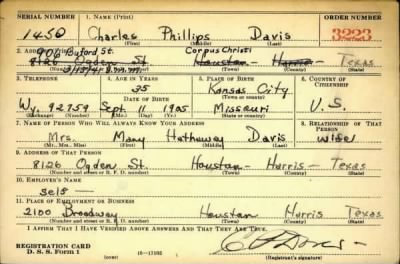 SERIAL NUMBER 1. NAME (Print) ORDER NUMBER
1450 Charles Phillips Davis 3223
(First) (Middle) (Last)
906 Buford St. Corpus Christi
2. ADDRESS (Print)
8126 Ogden St Houston - Harris - Texas
(Number and street or R. F. D. number) (Town) (County) (State)
3. TELEPHONE 4. AGE IN YEARS 5. PLACE OF BIRTH 6. COUNTRY OF CITIZENSHIP
35 Kansas City
DATE OF BIRTH (Town or county)
Wy. 92759 Sept 11 1905 Missouri U.S.
(Exchange) (Number) (Mo.) (Day) (Yr.) (State or country)
7. NAME OF PERSON WHO WILL ALWAYS KNOW YOUR ADDRESS 8. RELATIONSHIP OF THAT PERSON
Mrs. Mary Hathaway Davis wife
(Mr., Mrs., Miss) (First) (Middle) (Last)
9. ADDRESS OF THAT PERSON
8126 Ogden St. Houston - Harris - Texas
(Number and street or R. F. D. number) (Town) (County) (State)
10. EMPLOYER'S NAME
self —
11. PLACE OF EMPLOYMENT OR BUSINESS
2100 Broadway Houston Harris Texas
(Number and street or R. F. D. number) (Town) (County) (State)
I AFFIRM THAT I HAVE VERIFIED ABOVE ANSWERS AND THAT THEY ARE TRUE.
REGISTRATION CARD
D. S. S. Form 1 (over) 16—17105
(Registrant's signature)